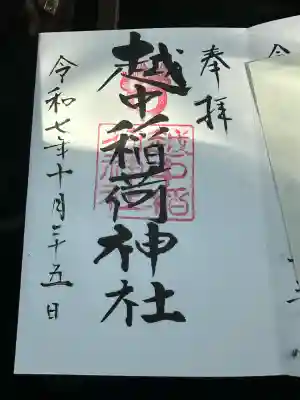 奉拝
越中稲荷神社
令和七年十月二十五日